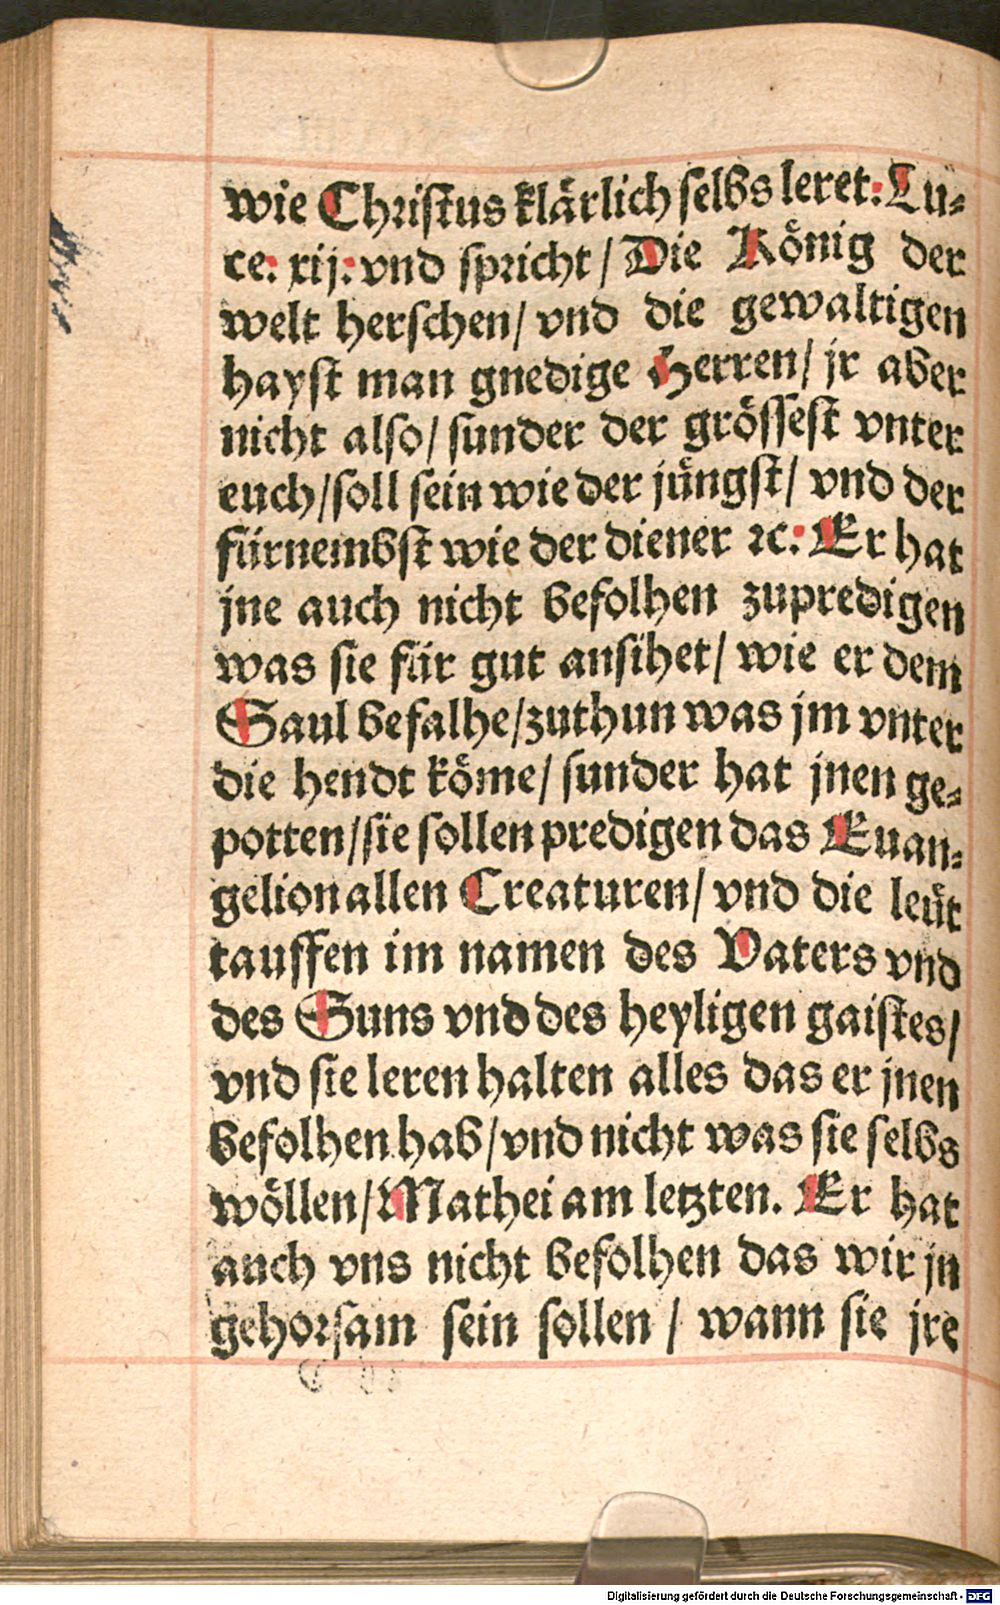 wie Christus klärlich selbs leret: Lu⸗
ce: xij: vnd spricht / Die König der
welt herschen / vnd die gewaltigen
hayst man gnedige Herren / jr aber
nicht also / sunder der grössest vnter
euch / soll sein wie der jüngst / vnd der
fürnembst wie der diener ꝛc: Er hat
jne auch nicht befolhen zupredigen
was sie für gut ansihet / wie er dem
Saul befalhe / zuthun was jm vnter
die hendt köme / sunder hat jnen ge⸗
potten / sie sollen predigen das Euan⸗
gelion allen Creaturen / vnd die leüt
tauffen im namen des Vaters vnd
des Suns vnd des heyligen gaistes /
vnd sie leren halten alles das er jnen
befolhen hab / vnd nicht was sie selbs
wöllen / Mathei am letzten. Er hat
auch vns nicht befolhen das wir jn
gehorsam sein sollen / wann sie jre
Digitalisierung gefördert durch die Deutsche Forschungsgemeinschaft - DFG